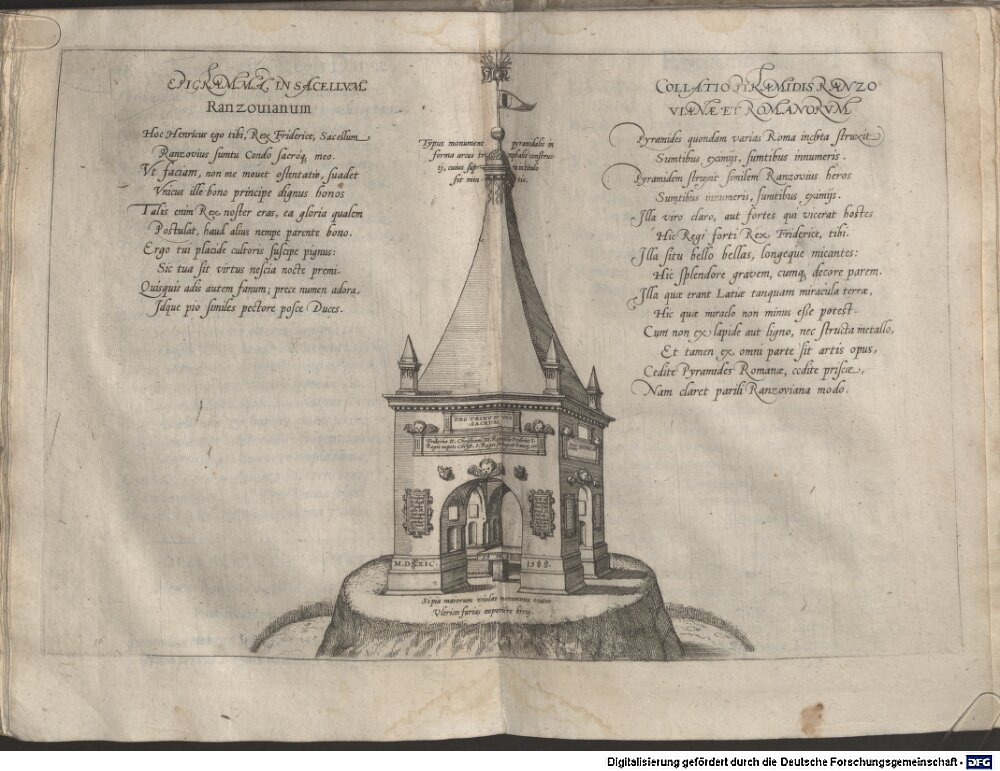 EPIGRAMMA IN SACELLVM
Ranzouianum
Hoc Henricus ego tibi, Rex Friderice, Sacellum
Ranzovius sumtu Condo sacróq, meo.
Vt faciam, non me mouet ostentatio, suadet
Vnicus ille bono principe dignus honos
Talis enim Rex noster eras, ea gloria qualem
Postulat, haud alius nempe parente bono.
Ergo tui placide cultoris suscipe pignus:
Sic tua sit virtus nescia nocte premi.
Quisquis adis autem fanum; prece numen adora,
Idque pio similes pectore posce Duces.
Typus monument pyramidalis in
forma arcus tri mphalis constru
ti, cuius super
fit
DEO TRINO ET VNI
SACRVM
M.D.XIC. 1588.
Si pia maiorum violas monumenta viator
Vltrices furias experiere breui.
COLLATIO PYRAMIDIS RANZO
VIANÆ ET ROMANORVM
Pyramides quondam varias Roma inclyta struxit
Sumtibus eximijs, sumtibus innumeris.
Pyramidem struxit similem Ranzovius heros
Sumtibus innumeris, sumtibus eximijs.
Illa viro claro, aut fortes qui vicerat hostes
Hic Regi forti Rex Friderice, tibi.
Illa situ bello bellas, longeque micantes:
Hic splendore gravem, cumq, decore parem.
Illa quæ erant Latiæ tanquam miracula terræ,
Hic quæ miraclo non minus esse potest.
Cum non ex lapide aut ligno, nec structa metallo,
Et tamen ex omni parte sit artis opus,
Cedite Pyramides Romanæ, cedite priscæ,
Nam claret parili Ranzoviana modo.
Digitalisierung gefördert durch die Deutsche Forschungsgemeinschaft - DFG